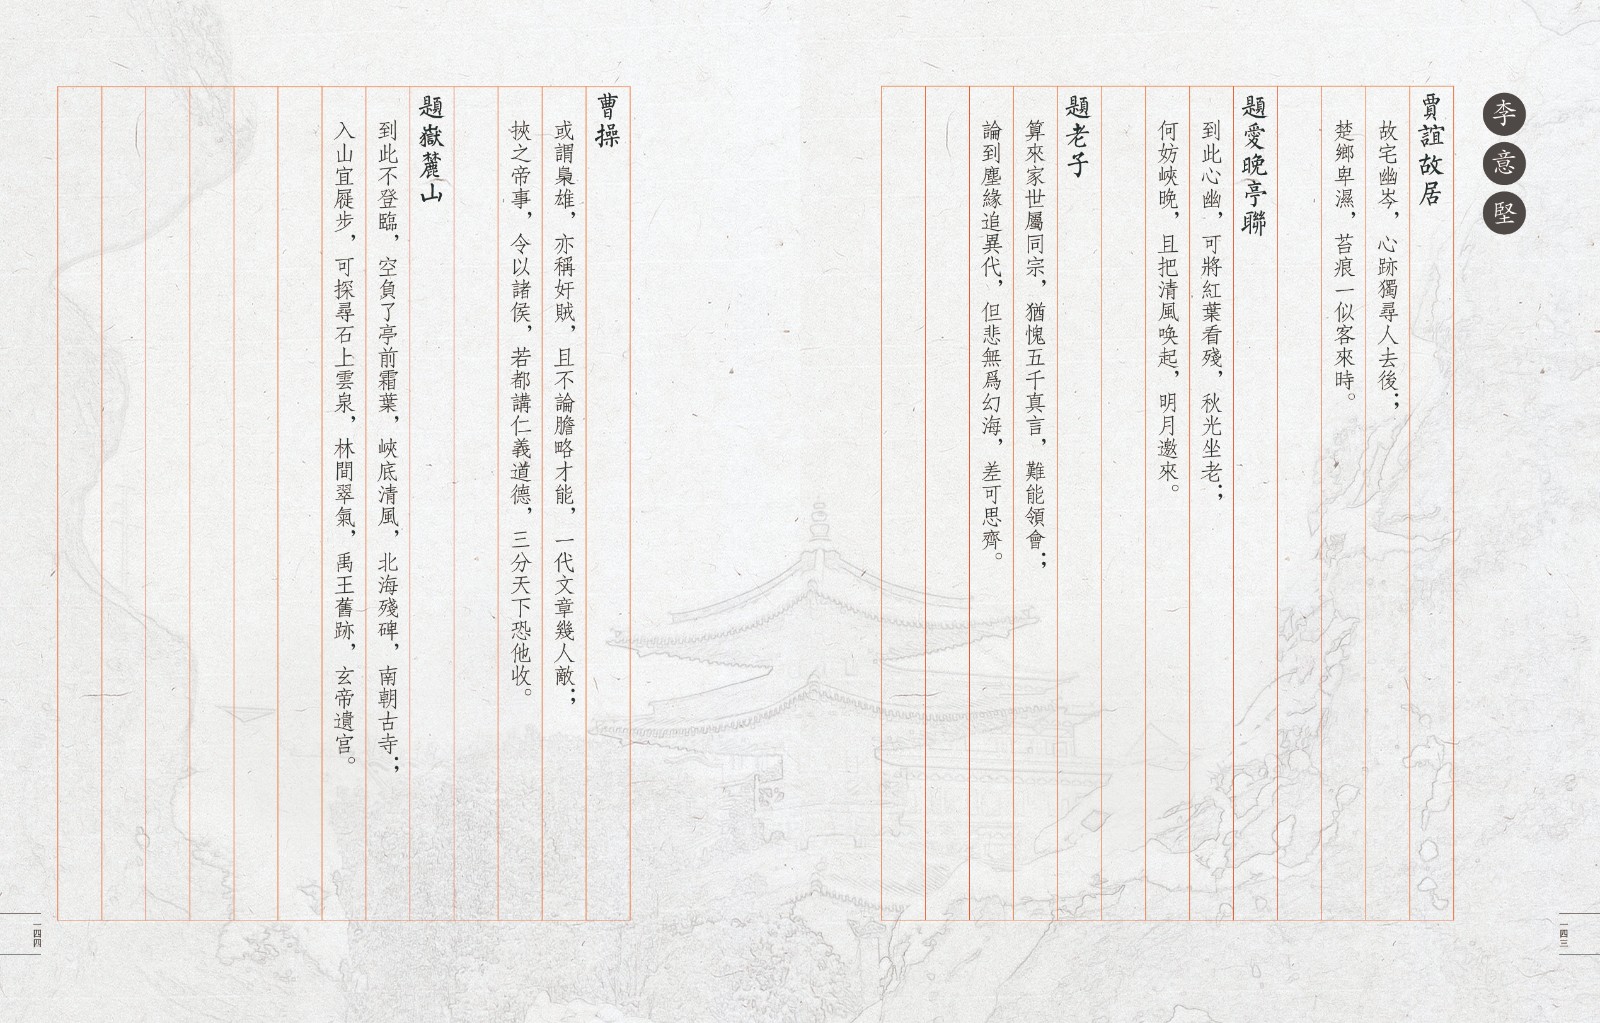 李意堅
賈誼故居
故宅幽岑，心跡獨尋人去後；
楚鄉卑濕，苔痕一似客來時。
題愛晚亭聯
到此心幽，可將紅葉看殘，秋光坐老；
何妨峽晚，且把清風喚起，明月邀來。
題老子
算來家世屬同宗，猶愧五千真言，難能領會；
論到塵緣追異代，但悲無爲幻海，差可思齊。
一四三
曹操
或謂梟雄，亦稱奸賊，且不論膽略才能，一代文章幾人敵；
挾之帝事，令以諸侯，若都講仁義道德，三分天下恐他收。
題嶽麓山
到此不登臨，空負了亭前霜葉，峽底清風，北海殘碑，南朝古寺；
入山宜屐步，可探尋石上雲泉，林間翠氣，禹王舊跡，玄帝遺宮。
一四四